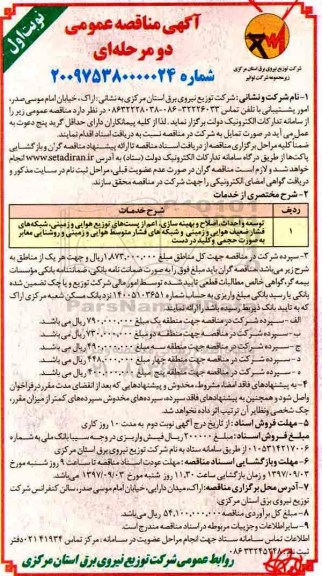 نوبت اول
آگهی مناقصه عمومی
دو مرحله‌ای
شماره ۲۰۰۹۷۵۳۸۰۰۰۰۰۲۴
شرکت توزیع نیروی برق استان مرکزی
زیرمجموعه شرکت توانیر
۱- نام شرکت و نشانی: شرکت توزیع نیروی برق استان مرکزی به نشانی: اراک، خیابان امام موسی صدر،
امور پشتیبانی با تلفن تماس ۳۲۲۲۶۰۳۳-۰۸۶ در نظر دارد مناقصه عمومی زیر را
از سامانه تدارکات الکترونیک دولت برگزار نماید. لذا از کلیه پیمانکاران دارای حداقل گرید پنج دعوت به
عمل می‌آید در صورت تمایل به شرکت در مناقصه نسبت به دریافت اسناد اقدام نمایند.
ضمناً کلیه مراحل برگزاری مناقصه از دریافت اسناد مناقصه تا ارائه پیشنهاد مناقصه گران و بازگشایی
پاکت‌ها از طریق درگاه سامانه تدارکات الکترونیک دولت (ستاد) به آدرس www.setadiran.ir انجام
خواهد شد و لازم است مناقصه گران در صورت عدم عضویت قبلی، مراحل ثبت نام در سایت مذکور و
دریافت گواهی امضای الکترونیکی را جهت شرکت در مناقصه محقق سازند.
۲- شرح مختصری از خدمات
ردیف شرح خدمات
۱ توسعه و احداث، اصلاح و بهینه سازی، اعم از پست‌های توزیع هوایی و زمینی، شبکه‌های
فشار ضعیف هوایی و زمینی و شبکه های فشار متوسط هوایی و زمینی و روشنایی معابر
به صورت حجمی و کلید در دست
۳- سپرده شرکت در مناقصه جهت کل مناطق مبلغ ۱,۸۷۳,۰۰۰,۰۰۰ ریال و جهت هر یک از مناطق به
شرح زیر می‌باشد مناقصه گران باید مبلغ فوق را به صورت ضمانت نامه بانکی، ضمانتنامه بانکی مؤسسات
بیمه گر، گواهی خالص مطالبات قطعی تایید شده توسط امور مالی شرکت توزیع و یا چک تضمین شده
بانکی یا رسید بانکی مبلغ واریزی به حساب شماره ۱۴۰۰۵۱۰۳۶۵۱ نزد بانک مسکن شعبه مرکزی اراک
که به تایید بانک ذیربط رسیده باشد را ارائه نمایند.
الف- سپرده شرکت در مناقصه جهت منطقه یک مبلغ ۷۹۰,۰۰۰,۰۰۰ ریال می باشد.
ب- سپرده شرکت در مناقصه جهت منطقه دو مبلغ ۷۳۰,۰۰۰,۰۰۰ ریال می باشد.
ج- سپرده شرکت در مناقصه جهت منطقه سه مبلغ ۴۹۰,۰۰۰,۰۰۰ ریال می باشد.
د- سپرده شرکت در مناقصه جهت منطقه چهار مبلغ ۴۴۸,۰۰۰,۰۰۰ ریال می باشد.
ه- سپرده شرکت در مناقصه جهت منطقه پنج مبلغ ۴۰۰,۰۰۰,۰۰۰ ریال می باشد.
۴- به پیشنهادهای فاقد امضا، مشروط، مخدوش و پیشنهادهایی که بعد از انقضای مدت مقرر در فراخوان
واصل شود و همچنین به پیشنهادهای فاقد سپرده، سپرده‌های مخدوش، سپرده‌های کمتر از میزان مقرر،
چک شخصی و نظایر آن ترتیب اثر داده نخواهد شد.
۵- مهلت فروش اسناد: از تاریخ درج آگهی نوبت دوم به مدت ۱۰ روز کاری
مبلغ فروش اسناد: مبلغ ۲۰۰۰۰۰ ریال فیش واریزی در وجه سیبا بانک ملی به شماره
۰۱۰۵۳۱۴۲۱۷۰۰۶ از طریق سامانه ستاد به نام شرکت توزیع نیروی برق استان مرکزی
۶- مهلت و بازگشایی اسناد مناقصه: مهلت عودت اسناد مناقصه تا ساعت ۹ روز شنبه مورخ
۱۳۹۷/۰۹/۰۳ و زمان بازگشایی ساعت ۱۱,۳۰ روز شنبه مورخ ۱۳۹۷/۰۹/۰۳ می باشد.
۷- آدرس محل برگزاری مناقصه: اراک، میدان دارایی، خیابان امام موسی صدر، سالن کنفرانس شرکت
توزیع نیروی برق استان مرکزی.
۸- مبلغ کل برآوردی مناقصه ۵۴,۱۰۰,۰۰۰,۰۰۰ ریال می باشد.
۹- سایر اطلاعات و جزییات مربوطه در اسناد مناقصه مندرج است
اطلاعات تماس سامانه ستاد جهت انجام مراحل عضویت در سامانه: مرکز تماس ۴۱۹۳۴-۰۲۱ دفتر
ثبت نام: ۳۲۲۴۵۲۴۸-۰۸۶
روابط عمومی شرکت توزیع نیروی برق استان مرکزی